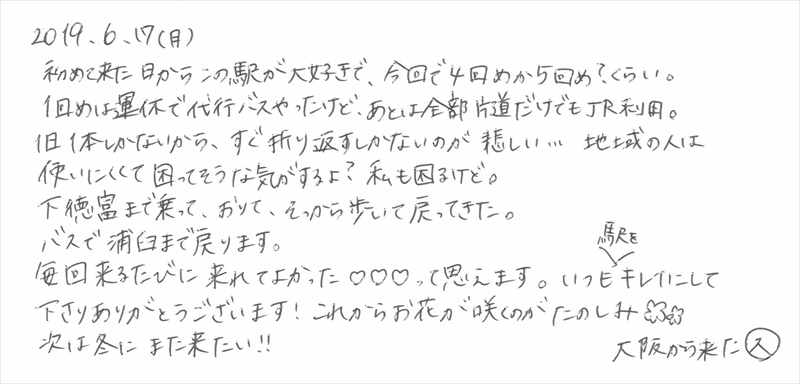 2019.6.17(月)
初めて来た日からこの駅が大好きで、今回で4回めか5回め?くらい。
1回めは運休で代行バスやったけど、あとは全部片道だけでもJR利用。
1日1本しかないから、すぐ折り返すしかないのが悲しい… 地域の人は
使いにくくて困ってそうな気がするよ?私も困るけど。
下徳富まで乗って、おりて、そっから歩いて戻ってきた。
バスで浦臼まで戻ります。
毎回来るたびに来れてよかった♡♡♡って思えます。いつも駅をキレイにして
下さりありがとうございます!これからお花が咲くのがたのしみ
次は冬にまた来たい!!
大阪から来た